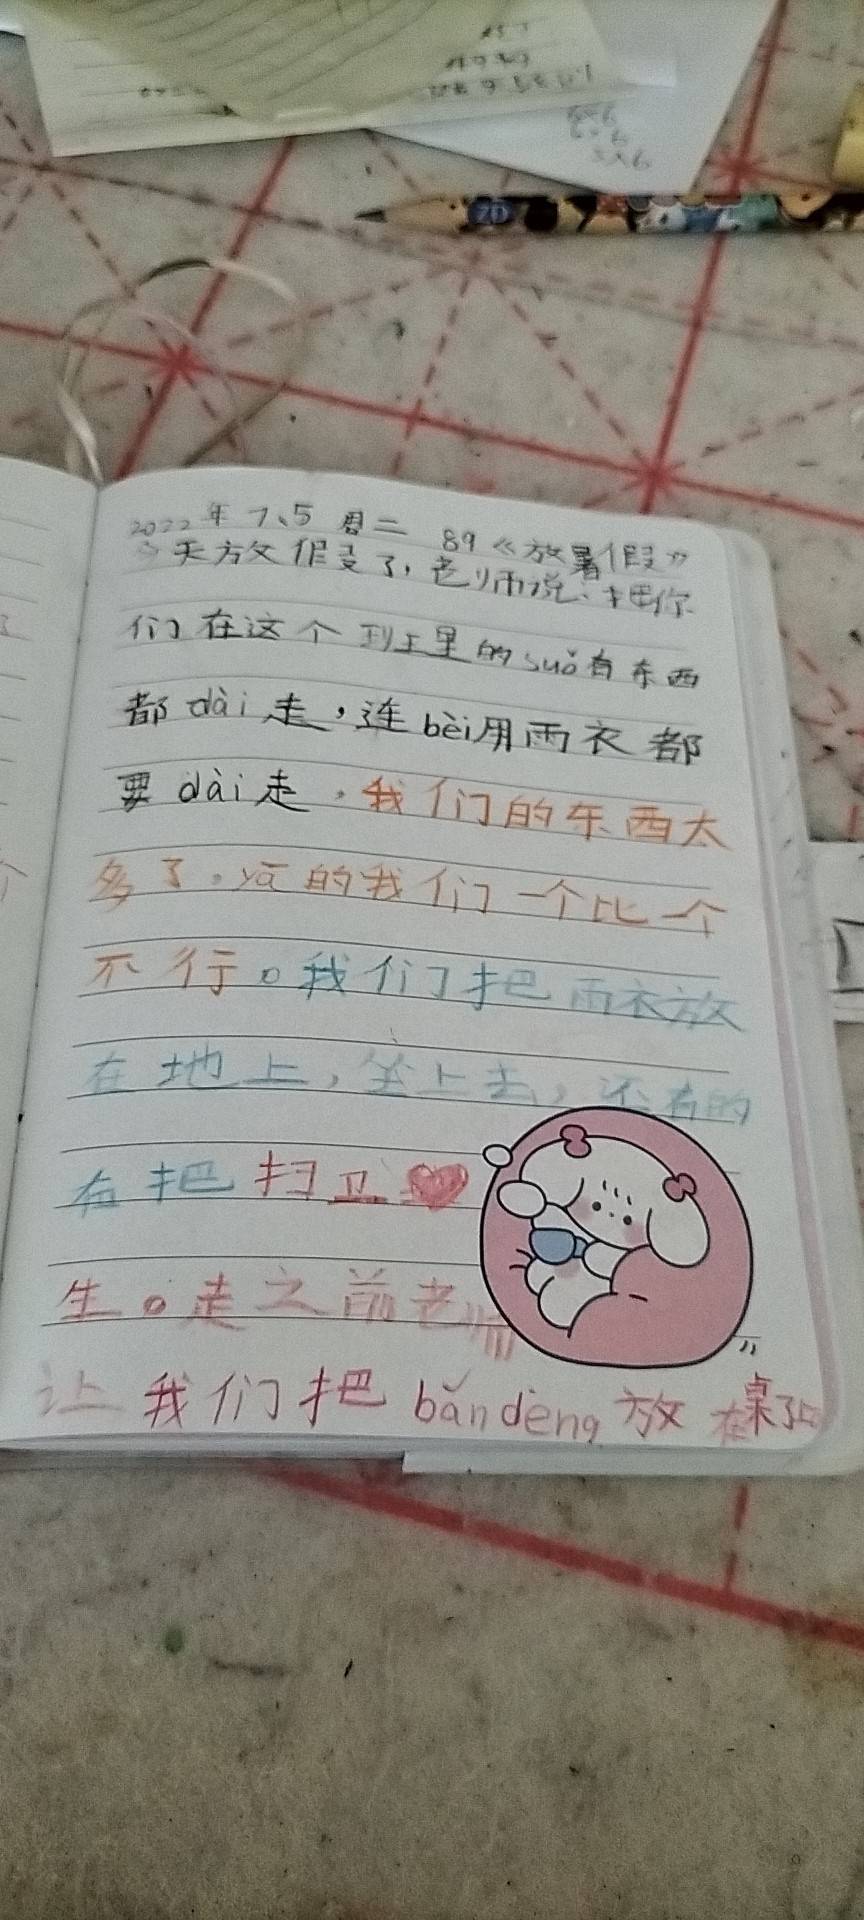 6×6
6×6
5×6
2022年 7、5 周二 89《放暑假》
今天放假了,老师说:把你
们在这个班上里的suǒ有东西
都dài走,连bèi用雨衣都
要dài走。我们的东西太
多了。yā的我们一个比一个
不行。我们把雨衣放
在地上,坐上去,还有的
在把扫卫
生。走之前老师
让我们把bǎndèng放在桌子上